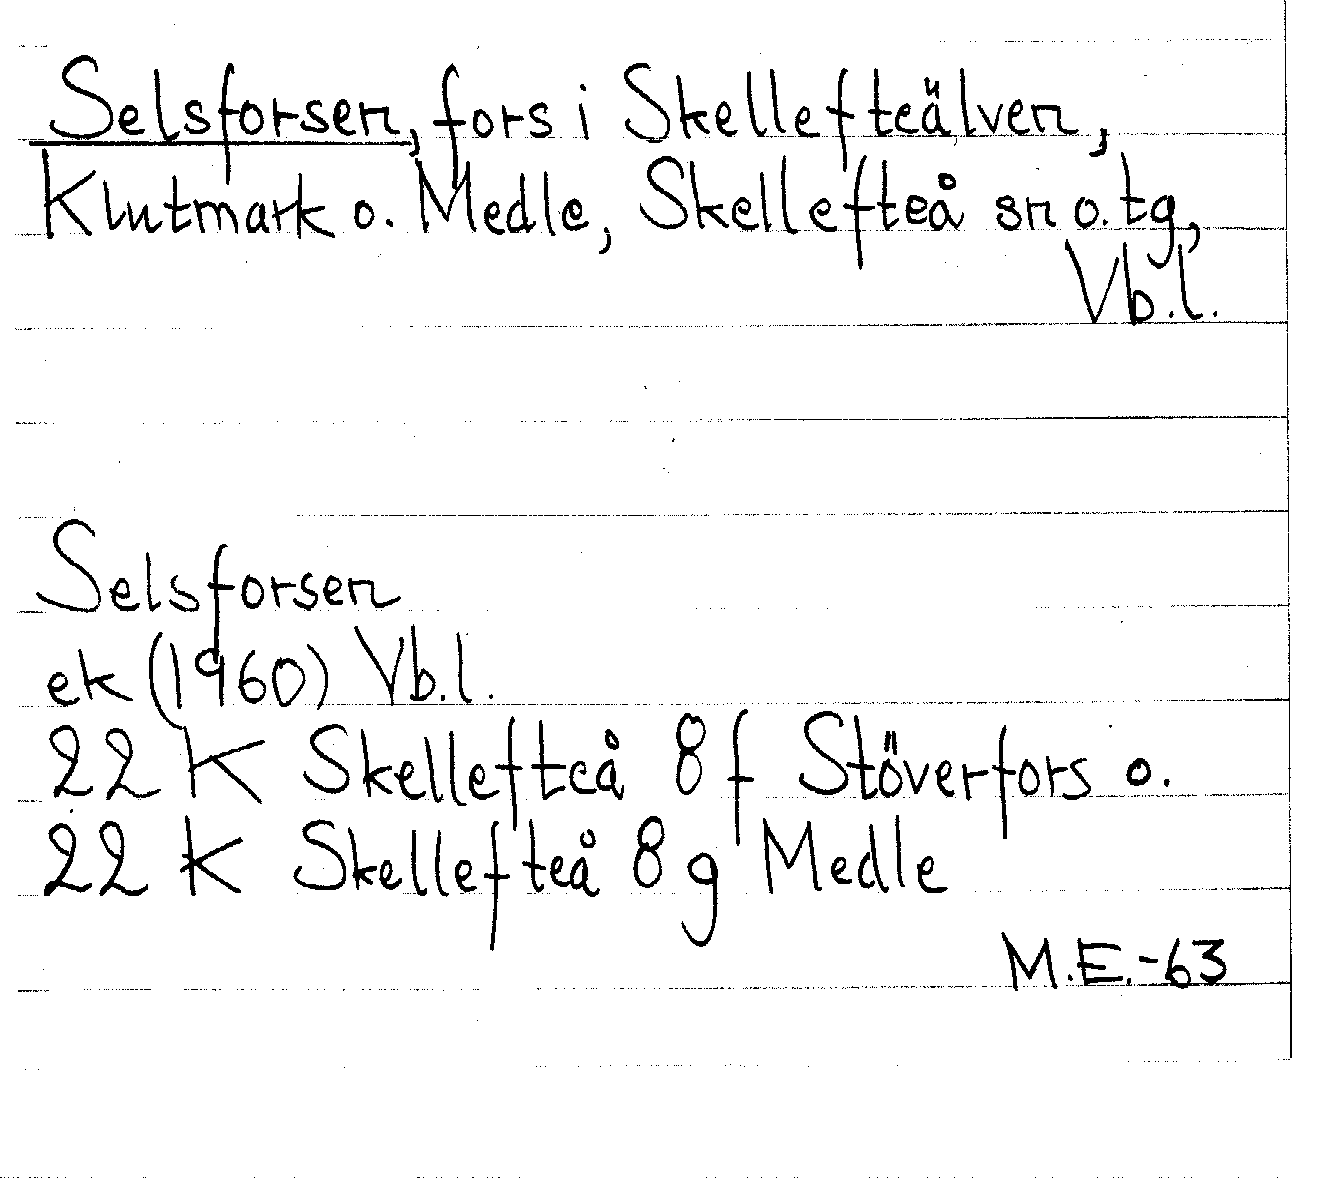 Selsforsen, fors i Skellefteälven,
Klutmark o. Medle, Skellefteå sn o. tg,
Vb.l.
Selsforsen
ek (1960) Vb.l.
22 K Skellefteå 8 f Stöverfors o.
22 K Skellefteå 8 g Medle
M.E.-63